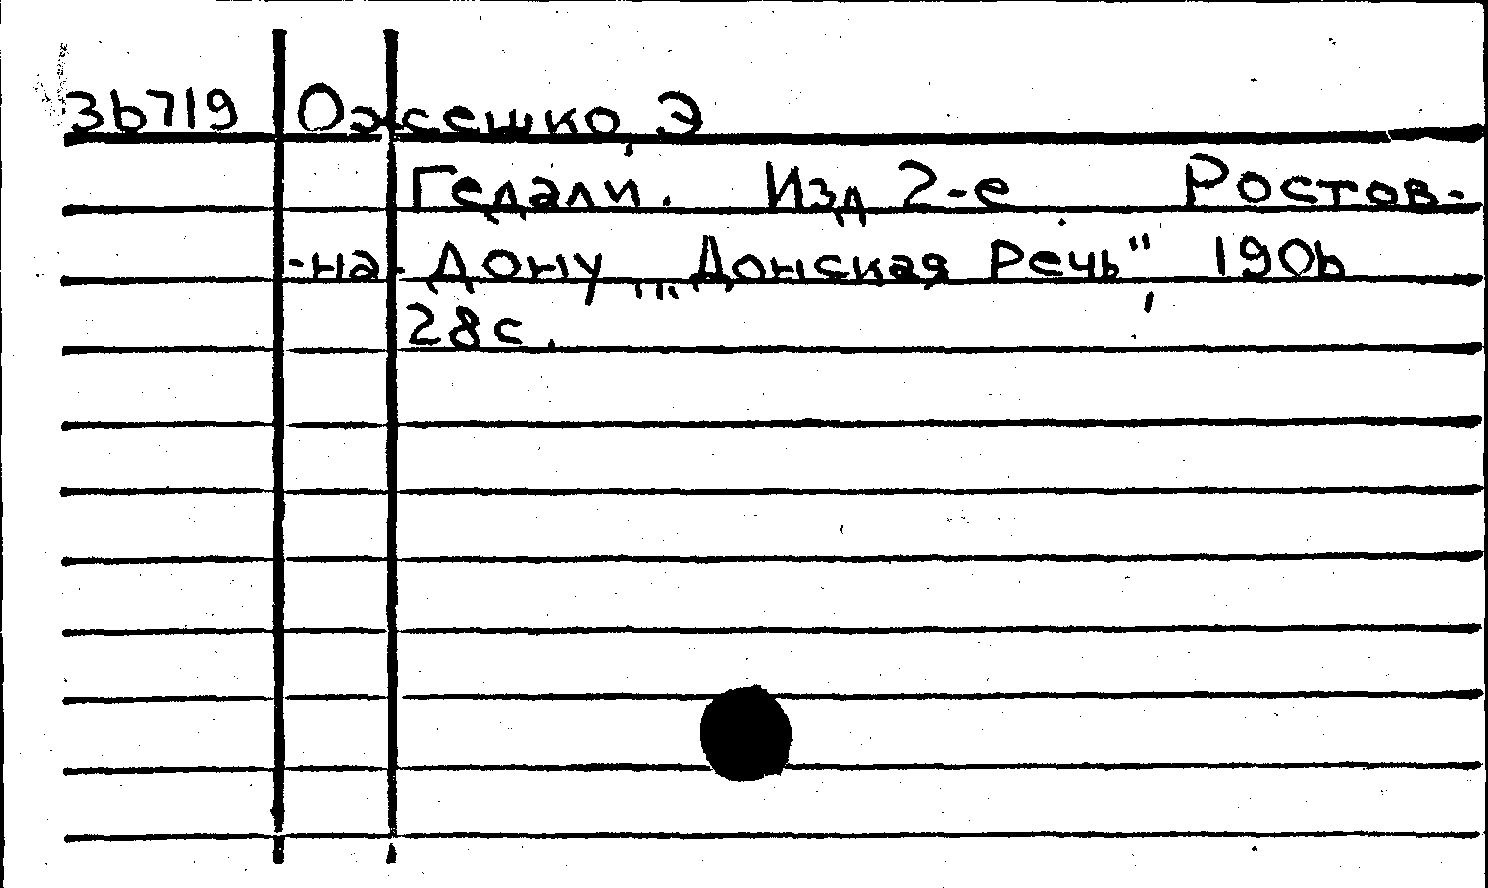 36719 Ожешко, Э
Гедали. Изд 2-е. Ростов-
-на-Дону, „Донская Речь", 1906
28с.